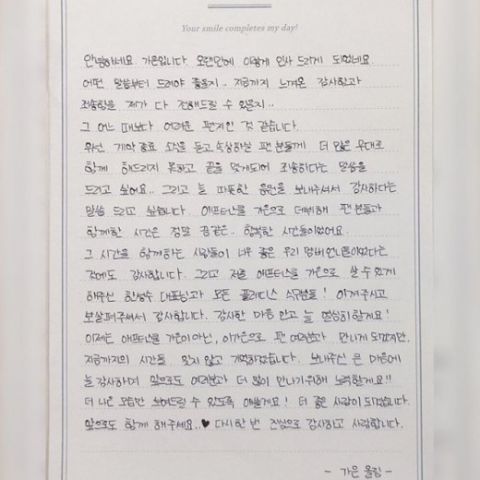 Your smile completes my day!
안녕하세요 가은입니다. 오랜만에 이렇게 인사 드리게 되었네요
어떤 말씀부터 드려야 좋을지.. 지금까지 느껴온 감사함과
죄송함을 제가 다 전해드릴 수 있을지..
그 어느 때보다 어려운 편지인 것 같습니다.
우선, 계약 종료 소식을 듣고 속상하실 팬 분들께 더 많은 무대로
함께 해드리지 못하고 끝을 맺게되어 죄송하다는 말씀을
드리고 싶어요.. 그리고 늘 따뜻한 응원을 보내주셔서 감사하다는
말씀 드리고 싶습니다. 애프터스쿨 가은으로 데뷔해 팬 분들과
함께한 시간은 정말 꿈같은.. 행복한 시간들이었어요.
그 시간을 함께하는 사람들이 너무 좋은 우리 멤버 언니들이었다는
것에도 감사합니다. 그리고 저를 애프터스쿨 가은으로 살 수 있게
해주신 한성수 대표님과 모든 플레디스 식구분들! 아껴주시고
보살펴주셔서 감사합니다. 감사한 마음 안고 늘 열심히 할게요!
이제는 애프터스쿨 가은이 아닌, 이가은으로 팬 여러분과 만나게 되겠지만,
지금까지의 시간들 잊지 않고 기억하겠습니다. 보내주신 큰 마음에
늘 감사하며 앞으로도 여러분과 더 많이 만나기위해 노력할게요!!
더 나은 모습만 보여드릴 수 있도록 애쓸게요! 더 좋은 사람이 되겠습니다.
앞으로도 함께 해주세요..♥ 다시 한 번 진심으로 감사하고 사랑합니다.
- 가은 올림 -